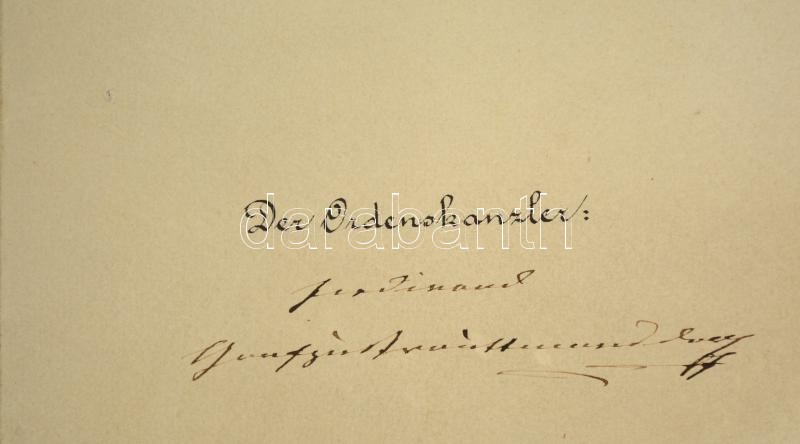 Der Ordenskanzler:
darabanth
Ferdinand
Graf zu Trauttmansdorff